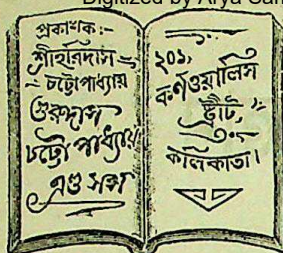 Digitized by Arya Sam
প্রকাশক:—
শ্রীহরিদাস
চট্টোপাধ্যায়
গুরুদাস
চট্টোপাধ্যায়
এণ্ড সন্স
২০১,
কর্নওয়ালিস
ষ্ট্রীট,
কলিকাতা।